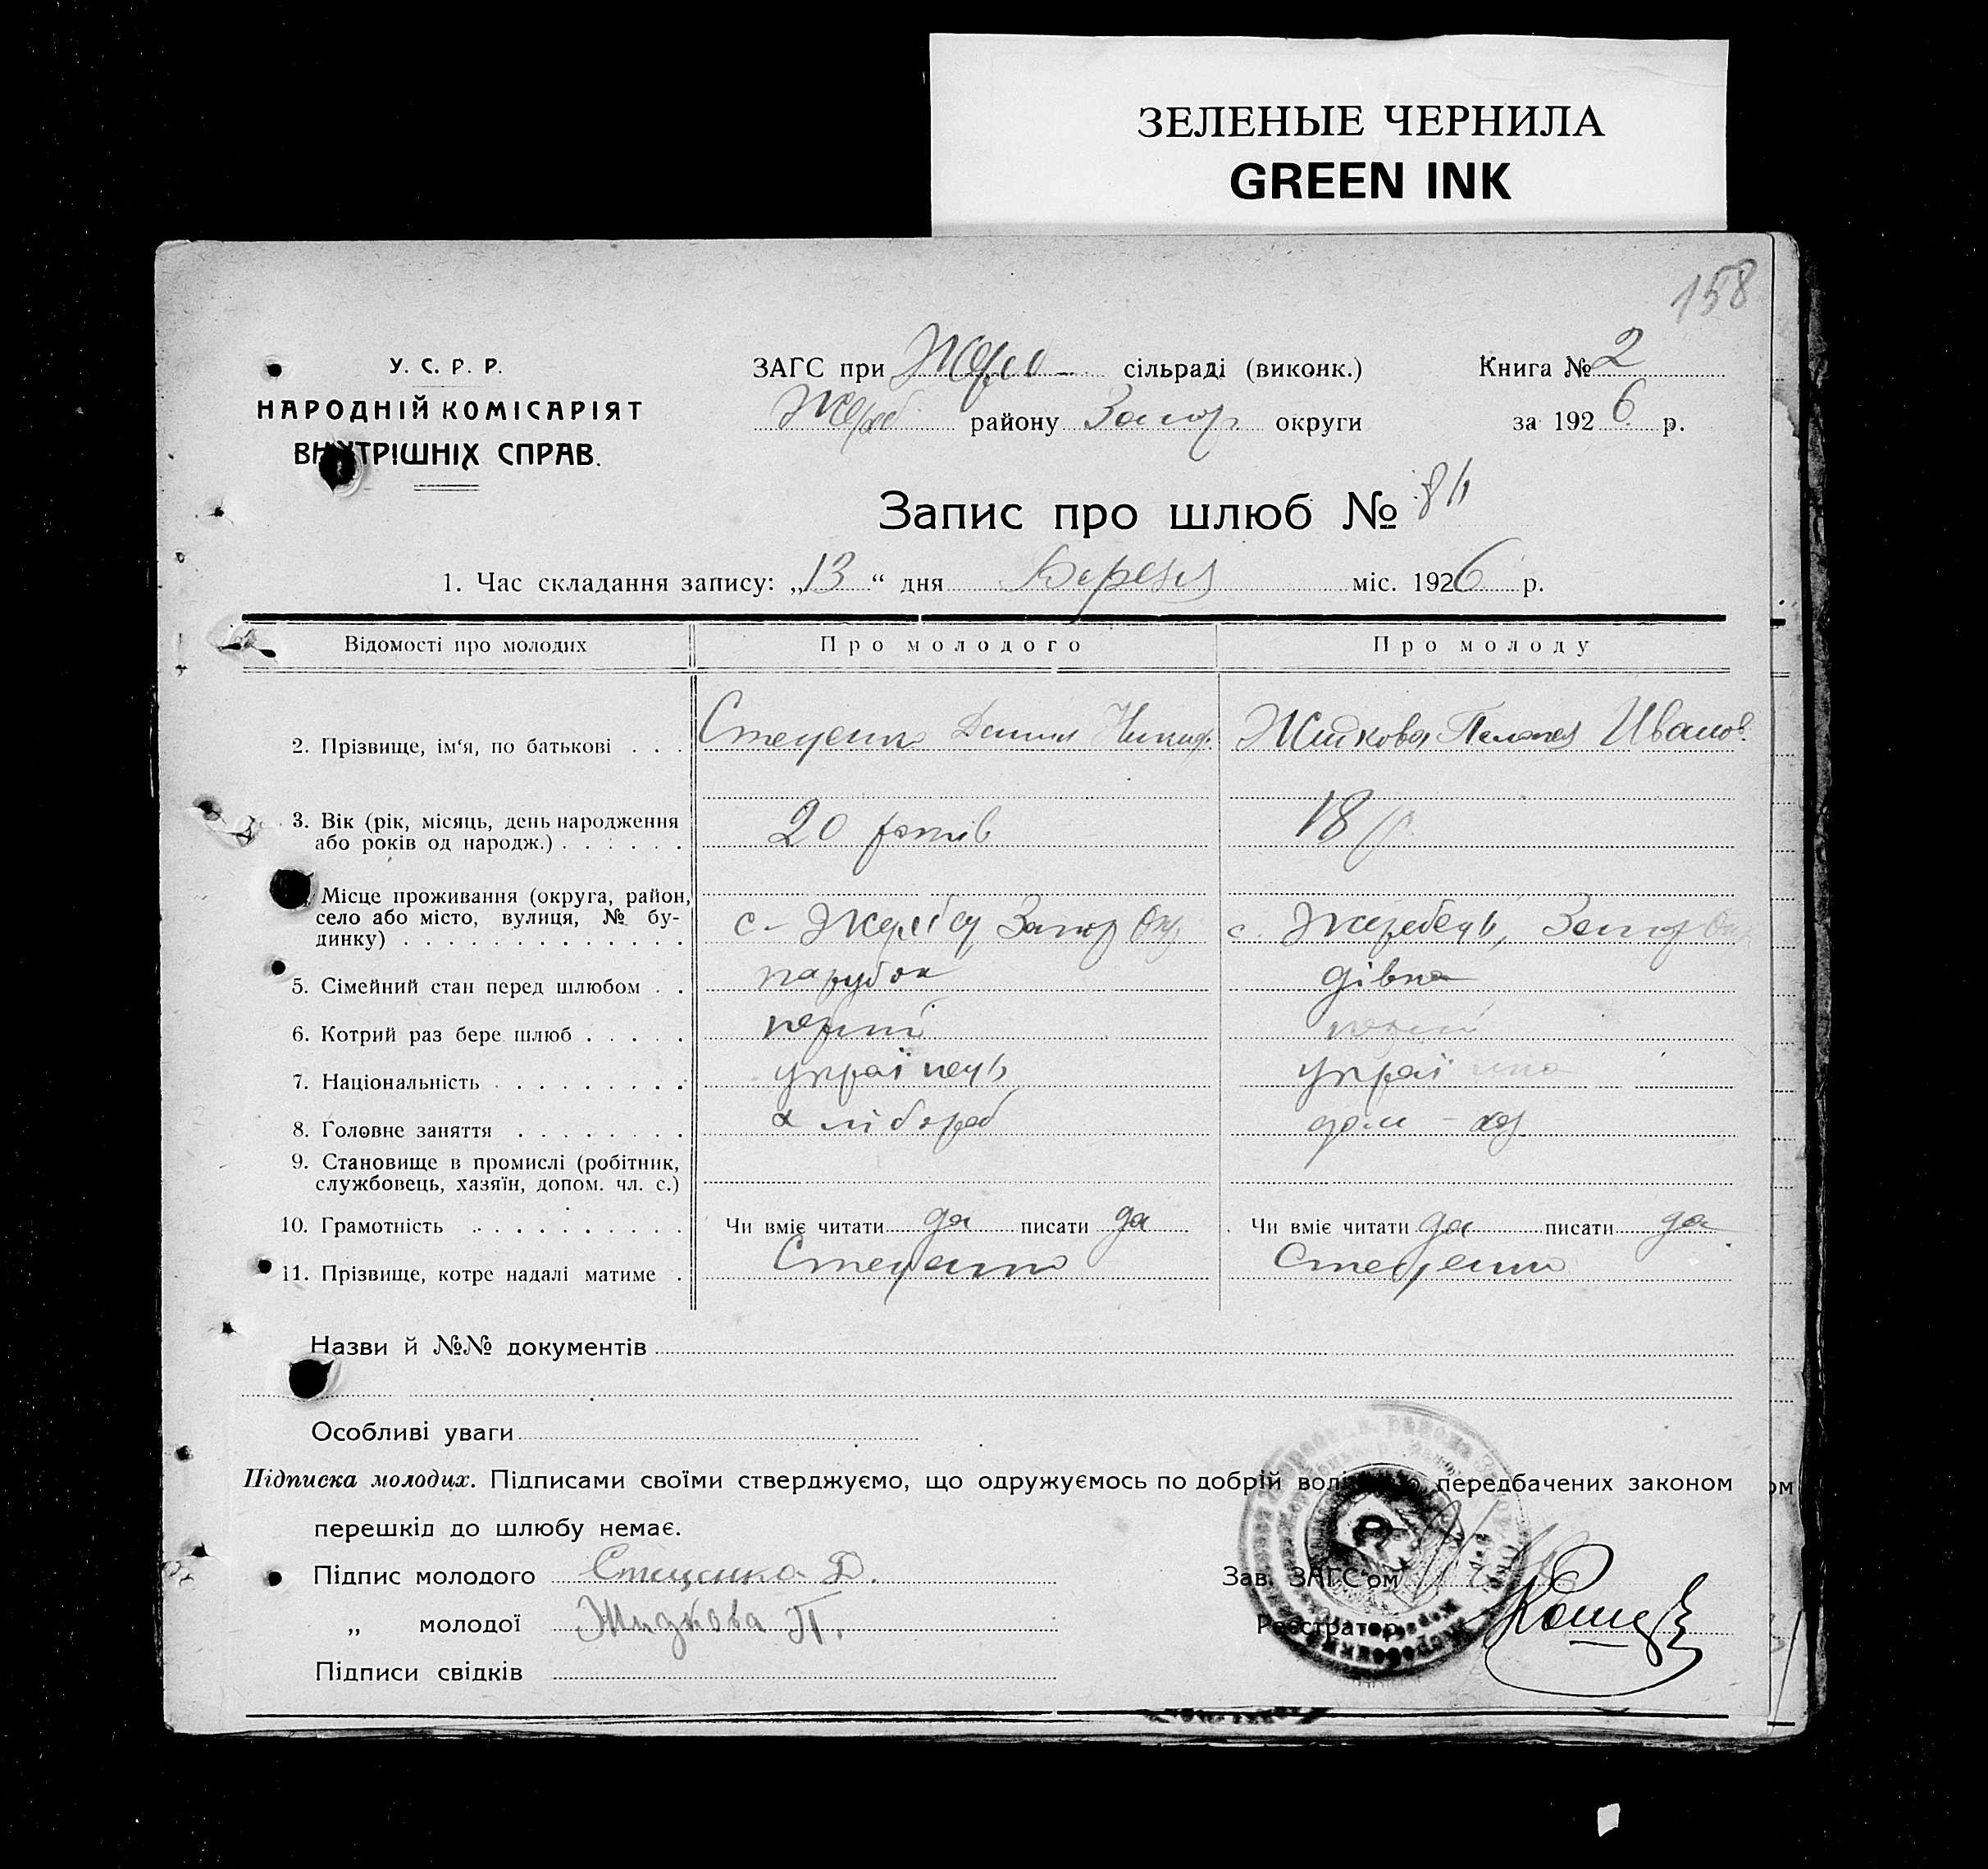 ЗЕЛЕНЫЕ ЧЕРНИЛА
GREEN INK
158
У. С. Р. Р.
НАРОДНІЙ КОМІСАРІЯТ
ВНУТРІШНІХ СПРАВ.
ЗАГС при сільраді (виконк.)
Жереб району Запор округи
Книга № 2
за 1926 р.
Запис про шлюб №
1. Час складання запису: „13“ дня Березня міс. 1926 р.
Відомості про молодих Про молодого Про молоду
2. Прізвище, ім‘я, по батькові . . . Стеценко Данил Никиф. Жидкова Пелагея Иванов.
3. Вік (рік, місяць, день народження
або років од народж.) . . . . . . 20 років 18 р.
Місце проживання (округа, район,
село або місто, вулиця, № бу-
динку) . . . . . . . . . . . . . с. Жеребец Запор Окр с. Жеребець, Запор Окр
5. Сімейний стан перед шлюбом . . парубок дівка
6. Котрий раз бере шлюб . . . . . перший перший
7. Національність . . . . . . . . . українець україн
8. Головне заняття . . . . . . . . хлібороб дом-хоз
9. Становище в промислі (робітник,
службовець, хазяїн, допом. чл. с.)
10. Грамотність . . . . . . . . . . Чи вміє читати да писати да Чи вміє читати да писати да
11. Прізвище, котре надалі матиме . Стеценко Стеценко
Назви й №№ документів
Особливі уваги
Підписка молодих. Підписами своїми стверджуємо, що одружуємось по добрій волі передбачених законом
перешкід до шлюбу немає.
Підпис молодого Стеценко Д.
„ молодої Жидкова П.
Підписи свідків
Зав. ЗАГС'ом
Реєстратор